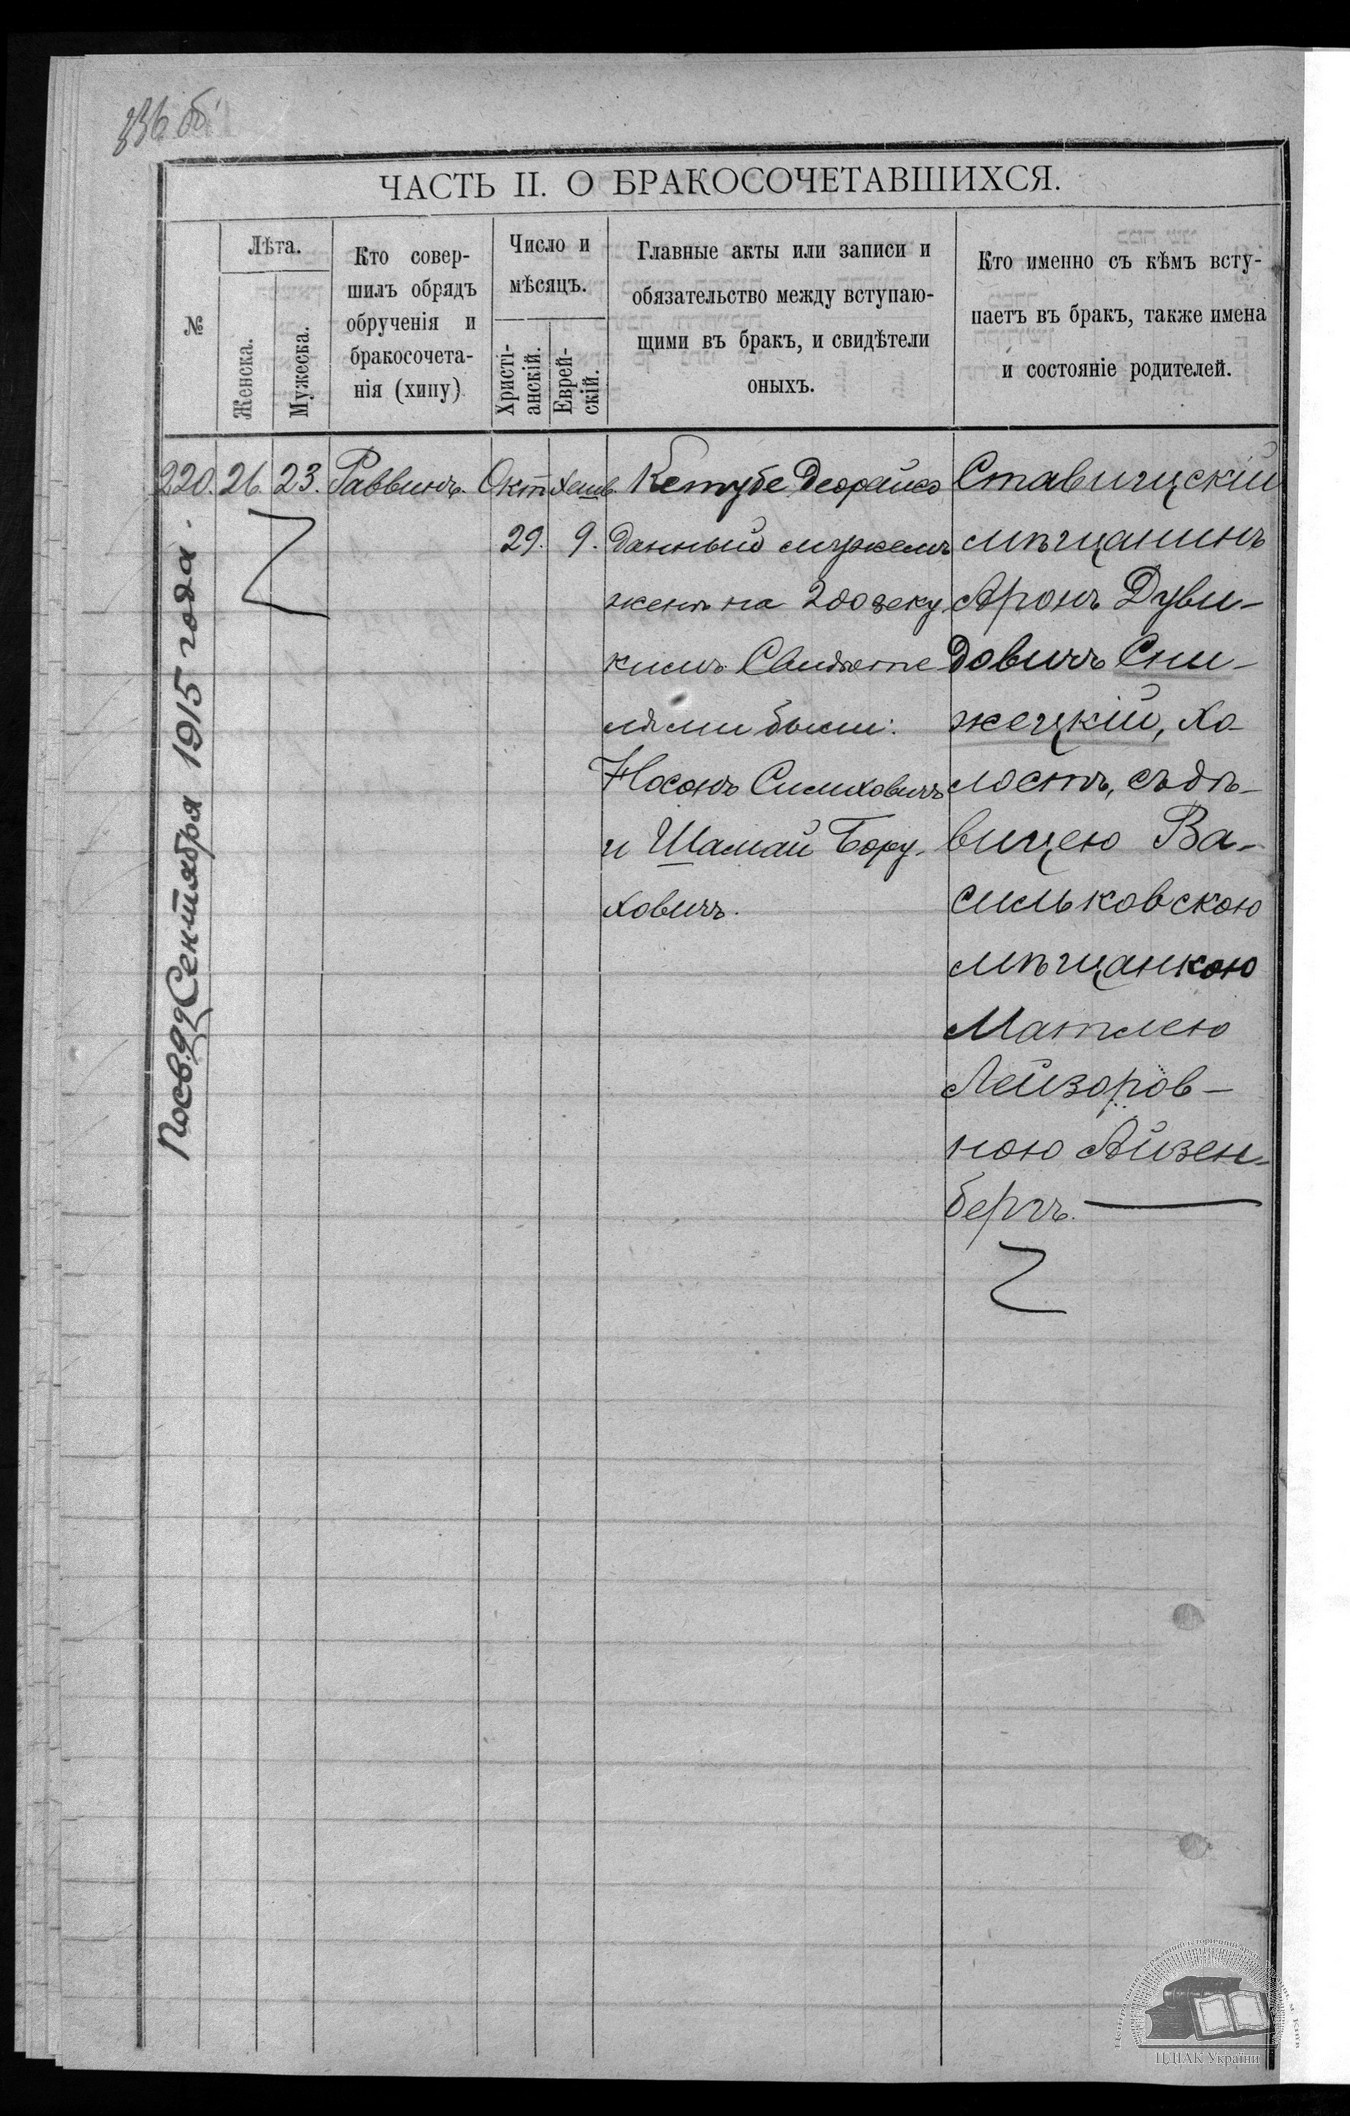 ЧАСТЬ II. О БРАКОСОЧЕТАВШИХСЯ.
№
Лѣта.
Женска.
Мужеска.
Кто совер-
шилъ обрядъ
обрученія и
бракосочета-
нія (хипу)
Число и
мѣсяцъ.
Христі-
анскій.
Еврей-
скій.
Главные акты или записи и
обязательство между вступаю-
щими въ бракъ, и свидѣтели
оныхъ.
Кто именно съ кѣмъ всту-
паетъ въ бракъ, также имена
и состояніе родителей.
220. 26. 23. Раввинъ. Окт. Хешв.
29. 9.
Кетубе Деорайсо
данный мужемъ
женѣ на 200 зеку
кимъ. Свидѣте
лями были:
Носонъ Симховичъ
и Шамай Бору-
ховичъ.
Ставищскій
мѣщанинъ
Аронъ Дуви-
довичъ Сни-
жецкій, хо-
лостъ, съ дѣ-
вицею Ва-
сильковскою
мѣщанкою
Матлею
Лейзоров-
ною Айзен-
бергъ.
Сентября 1915 года.
ЦДІАК України